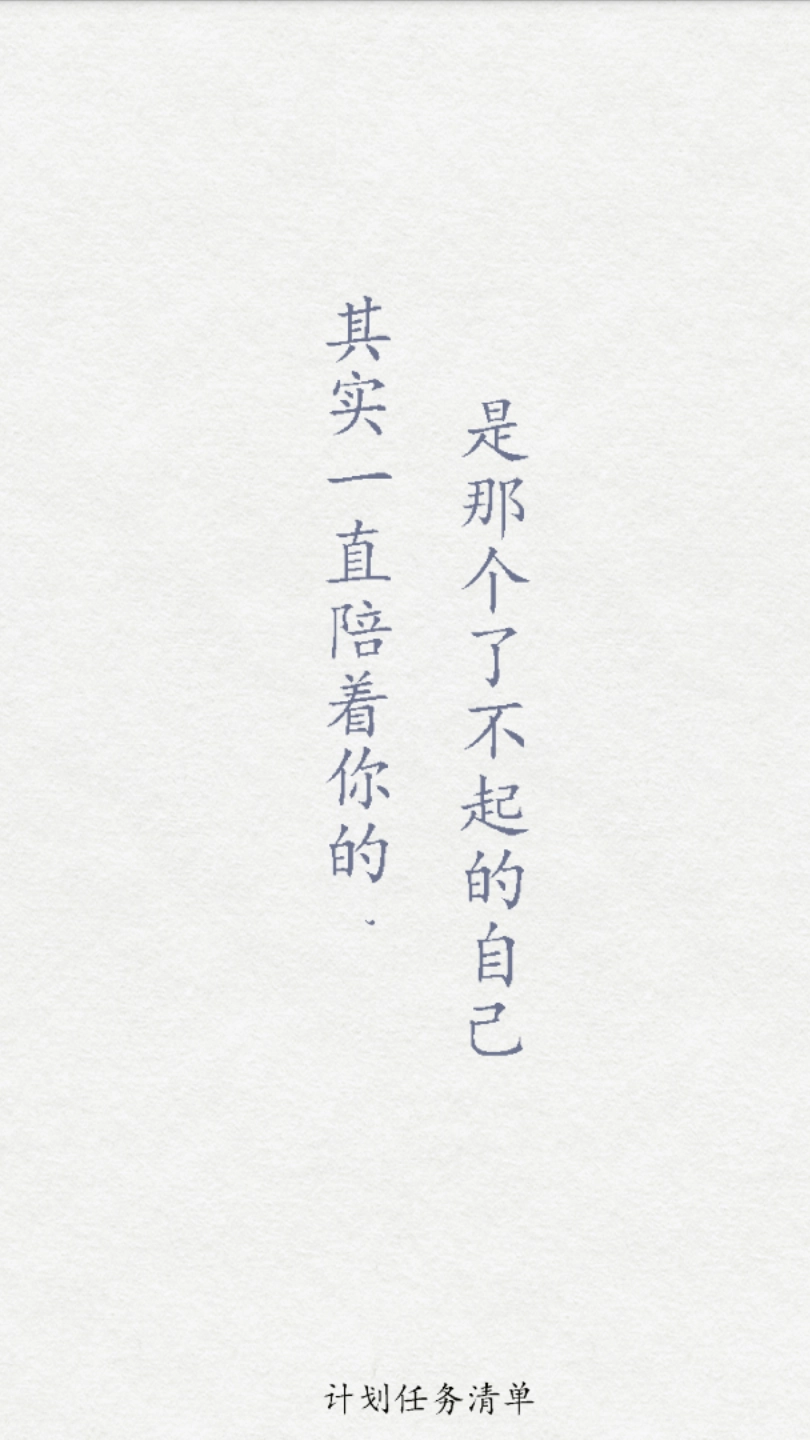 其实一直陪着你的、
是那个了不起的自己
计划任务清单